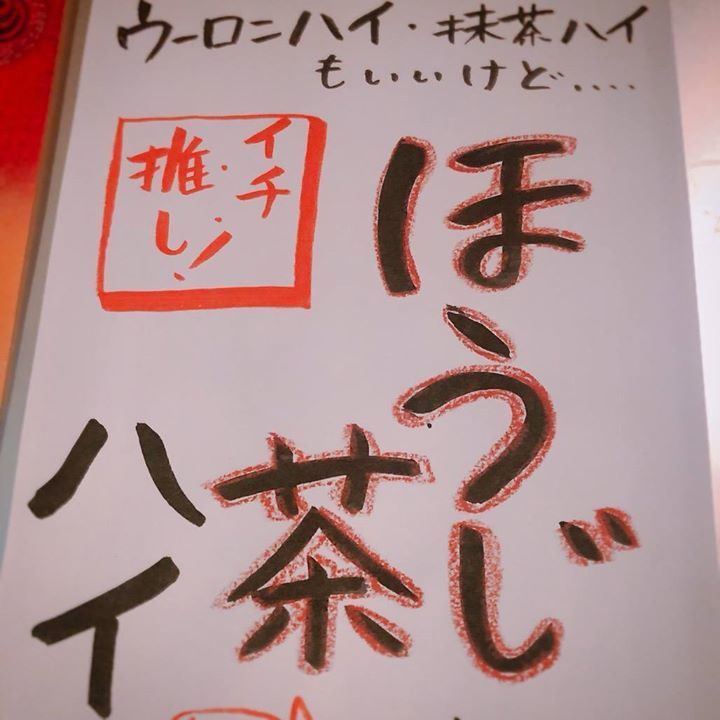 ウーロンハイ・抹茶ハイ
もいいけど....
イチ
推し!
ほうじ
茶
ハイ